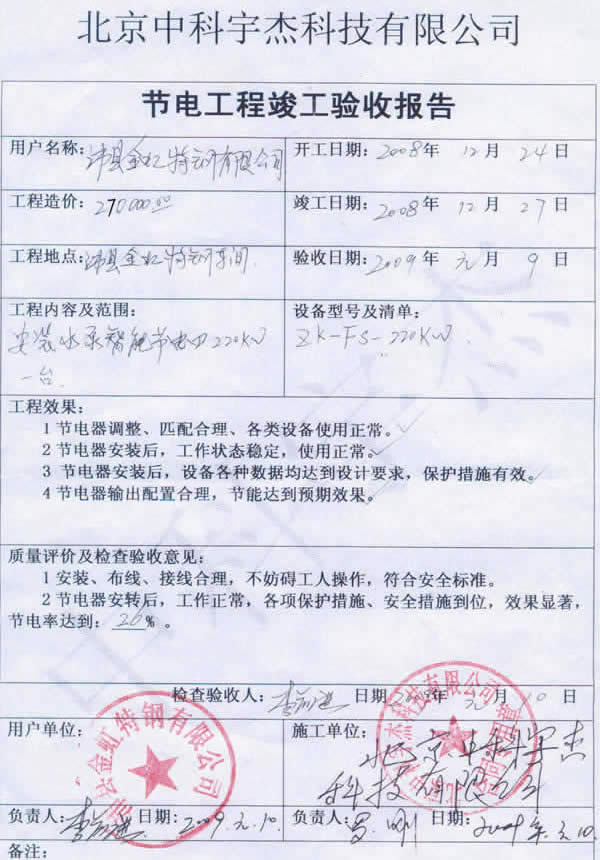 北京中科宇杰科技有限公司
节电工程竣工验收报告
用户名称：沛县金虹特钢有限公司 开工日期：2008年 12月 24日
工程造价：270000.00 竣工日期：2008年 12月 27日
工程地点：沛县金虹特钢车间 验收日期：2009年 元月 9日
工程内容及范围： 设备型号及清单：
安装水泵智能节电 220KW ZK-FS-220KW
一台.
工程效果：
1 节电器调整、匹配合理、各类设备使用正常。
2 节电器安装后，工作状态稳定，使用正常。
3 节电器安装后，设备各种数据均达到设计要求，保护措施有效。
4 节电器输出配置合理，节能达到预期效果。
质量评价及检查验收意见：
1 安装、布线、接线合理，不妨碍工人操作，符合安全标准。
2 节电器安转后，工作正常，各项保护措施、安全措施到位，效果显著，
节电率达到：26%。
检查验收人： 日期 元月 10日
用户单位： 施工单位：
金虹特钢有限公司 北京中科宇杰
科技有限公司
负责人： 日期：2009.元.10. 负责人： 日期：
备注：